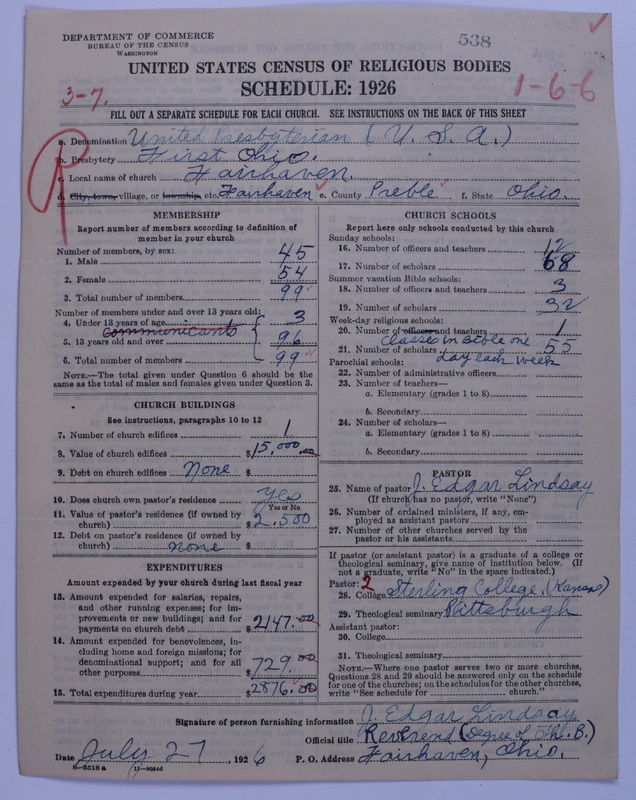 DEPARTMENT OF COMMERCE
BUREAU OF THE CENSUS
WASHINGTON
538
UNITED STATES CENSUS OF RELIGIOUS BODIES
SCHEDULE: 1926
3-7.
1-6-6
FILL OUT A SEPARATE SCHEDULE FOR EACH CHURCH. SEE INSTRUCTIONS ON THE BACK OF THIS SHEET
a. Denomination United Presbyterian (U. S. A.)
b. Presbytery First Ohio.
c. Local name of church Fairhaven.
d. City, town, village, or township, etc. Fairhaven e. County Preble f. State Ohio.
P
MEMBERSHIP
Report number of members according to definition of
member in your church
Number of members, by sex:
1. Male 45
2. Female 54
3. Total number of members 99
Number of members under and over 13 years old:
4. Under 13 years of age 3
communicants
5. 13 years old and over 96
6. Total number of members 99
NOTE.—The total given under Question 6 should be the
same as the total of males and females given under Question 3.
CHURCH BUILDINGS
See instructions, paragraphs 10 to 12
7. Number of church edifices 1
8. Value of church edifices $15,000.00
9. Debt on church edifices None $
10. Does church own pastor's residence yes
Yes or No
11. Value of pastor's residence (if owned by
church) $2,500
12. Debt on pastor's residence (if owned by
church) none $
EXPENDITURES
Amount expended by your church during last fiscal year
13. Amount expended for salaries, repairs,
and other running expenses; for im-
provements or new buildings; and for
payments on church debt $2147.00
14. Amount expended for benevolences, in-
cluding home and foreign missions; for
denominational support; and for all
other purposes $729.00
15. Total expenditures during year $2876.00
CHURCH SCHOOLS
Report here only schools conducted by this church
Sunday schools:
16. Number of officers and teachers 12
17. Number of scholars 68
Summer vacation Bible schools:
18. Number of officers and teachers 3
19. Number of scholars 32
Week-day religious schools:
20. Number of officers and teachers 1
classes in Bible one
21. Number of scholars 55
day each week
Parochial schools:
22. Number of administrative officers
23. Number of teachers—
a. Elementary (grades 1 to 8)
b. Secondary
24. Number of scholars—
a. Elementary (grades 1 to 8)
b. Secondary
PASTOR
25. Name of pastor J. Edgar Lindsay
(If church has no pastor, write "None")
26. Number of ordained ministers, if any, em-
ployed as assistant pastors
27. Number of other churches served by the
pastor or his assistants
If pastor (or assistant pastor) is a graduate of a college or
theological seminary, give name of institution below. (If
not a graduate, write "No" in the space indicated.)
Pastor: 2
28. College Sterling College, (Kansas)
29. Theological seminary Pittsburgh
Assistant pastor:
30. College
31. Theological seminary
NOTE.—Where one pastor serves two or more churches,
Questions 28 and 29 should be answered only on the schedule
for one of the churches; on the schedules for the other churches,
write "See schedule for church."
Signature of person furnishing information J. Edgar Lindsay
Official title Reverend (Degree of Th. B.)
Date July 27, 1926 P. O. Address Fairhaven, Ohio.